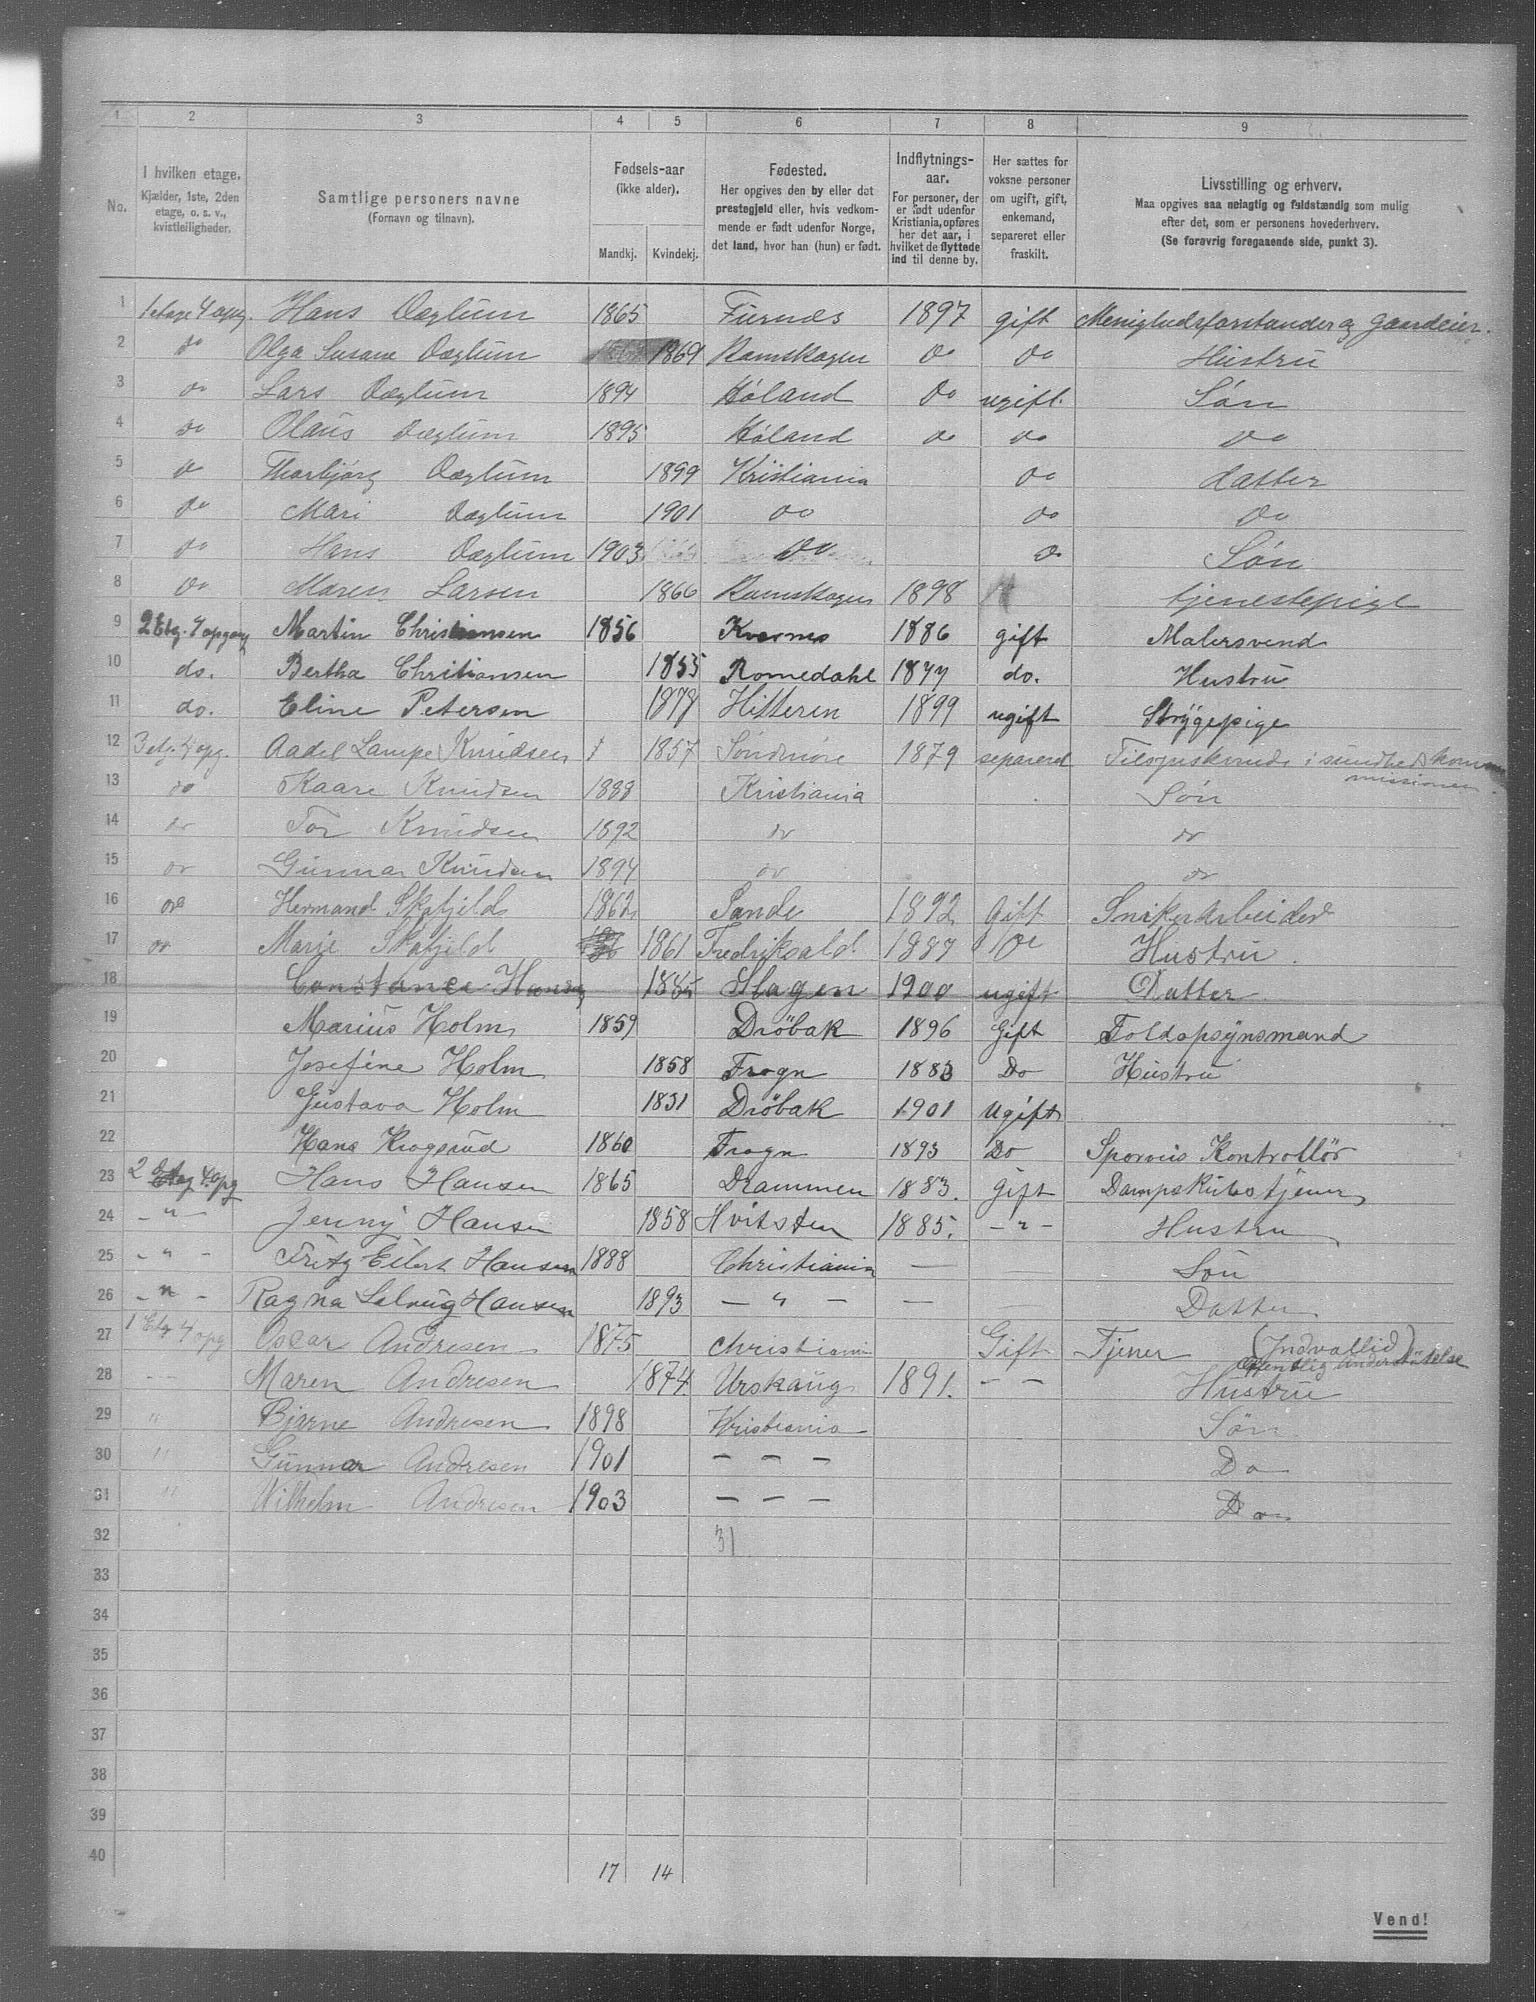 1 2 3 4 5 6 7 8 9
No.
I hvilken etage.
Kjælder, 1ste, 2den
etage, o. s. v.,
kvistleiligheder.
Samtlige personers navne
(Fornavn og tilnavn).
Fødsels-aar
(ikke alder).
Mandkj. Kvindekj.
Fødested.
Her opgives den by eller det
prestegjeld eller, hvis vedkom-
mende er født udenfor Norge,
det land, hvor han (hun) er født.
Indflytnings-
aar.
For personer, der
er født udenfor
Kristiania, opføres
her det aar, i
hvilket de flyttede
ind til denne by.
Her sættes for
voksne personer
om ugift, gift,
enkemand,
separeret eller
fraskilt.
Livsstilling og erhverv.
Maa opgives saa nøiagtig og fuldstændig som mulig
efter det, som er personens hovederhverv.
(Se forøvrig foregaaende side, punkt 3).
1 1 etage 4 opg. Hans Dæhlum 1865 Furnes 1897 gift Menighedsforstander og gaardeier.
2 do Olga Susane Dæhlum 1869 Ramskogen do do Hustru
3 do Lars Dæhlum 1894 Høland do ugift. Søn
4 do Olaus Dæhlum 1895 Høland do do do
5 do Thorbjørg Dæhlum 1899 Kristiania do datter
6 do Mari Dæhlum 1901 do do do
7 do Hans Dæhlum 1903 do do Søn
8 do Maren Larsen 1866 Ramskogen 1898 tjenestepige
9 2 Etg. 4 opgang Martin Christiansen 1856 Kvernes 1886 gift Malersvend
10 do. Bertha Christiansen 1855 Romedahl 1877 do. Hustru
11 do. Eline Petersen 1878 Hitteren 1899 ugift Strygepige
12 3 etg. 4 opg. Aadel Lampe Knudsen 1857 Söndmöre 1879 separeret Tilsynskvinde i sundhedskom
missionen.
13 do Kaare Knudsen 1888 Kristiania Søn
14 do Tor Knudsen 1892 do do
15 do Gunnar Knudsen 1894 do do
16 do Hermand Skafjeld 1862 Sande 1892 Gift Snikerarbeider
17 do Marie Skafjeld 1861 Fredriksald 1887 do Hustru.
18 Constance Hansen 1885 Slagen 1900 ugift Datter
19 Marius Holm 1859 Dröbak 1896 Gift Toldopsynsmand
20 Josefine Holm 1858 Frogn 1883 Do Hustru
21 Gustava Holm 1831 Dröbak 1901 Ugift
22 Hans Krogsrud 1860 Frogn 1893 Do Sporveis Kontrollør
23 2 Etag 4 opg Hans Hansen 1865 Drammen 1883. gift Dampskibstjener
24 – " – Jenny Hansen 1858 Hvitsten 1885. – " – Hustru
25 – " – Fritz Eilert Hansen 1888 Christiania — Søn
26 – " – Ragna Solveig Hansen 1893 — " — — Datter
27 1 Etg 4 opg Oscar Andresen 1875 Christiania Gift Tjener (Indvallid)
offentlig understøttelse
28 – – Maren Andresen 1874 Urskaug 1891. – – Hustru
29 " Bjarne Andresen 1898 Kristiania Søn
30 " Gunnar Andresen 1901 – – – Do
31 " Wilhelm Andresen 1903 – – – Do
32 31
33
34
35
36
37
38
39
40 17 14
Vend!